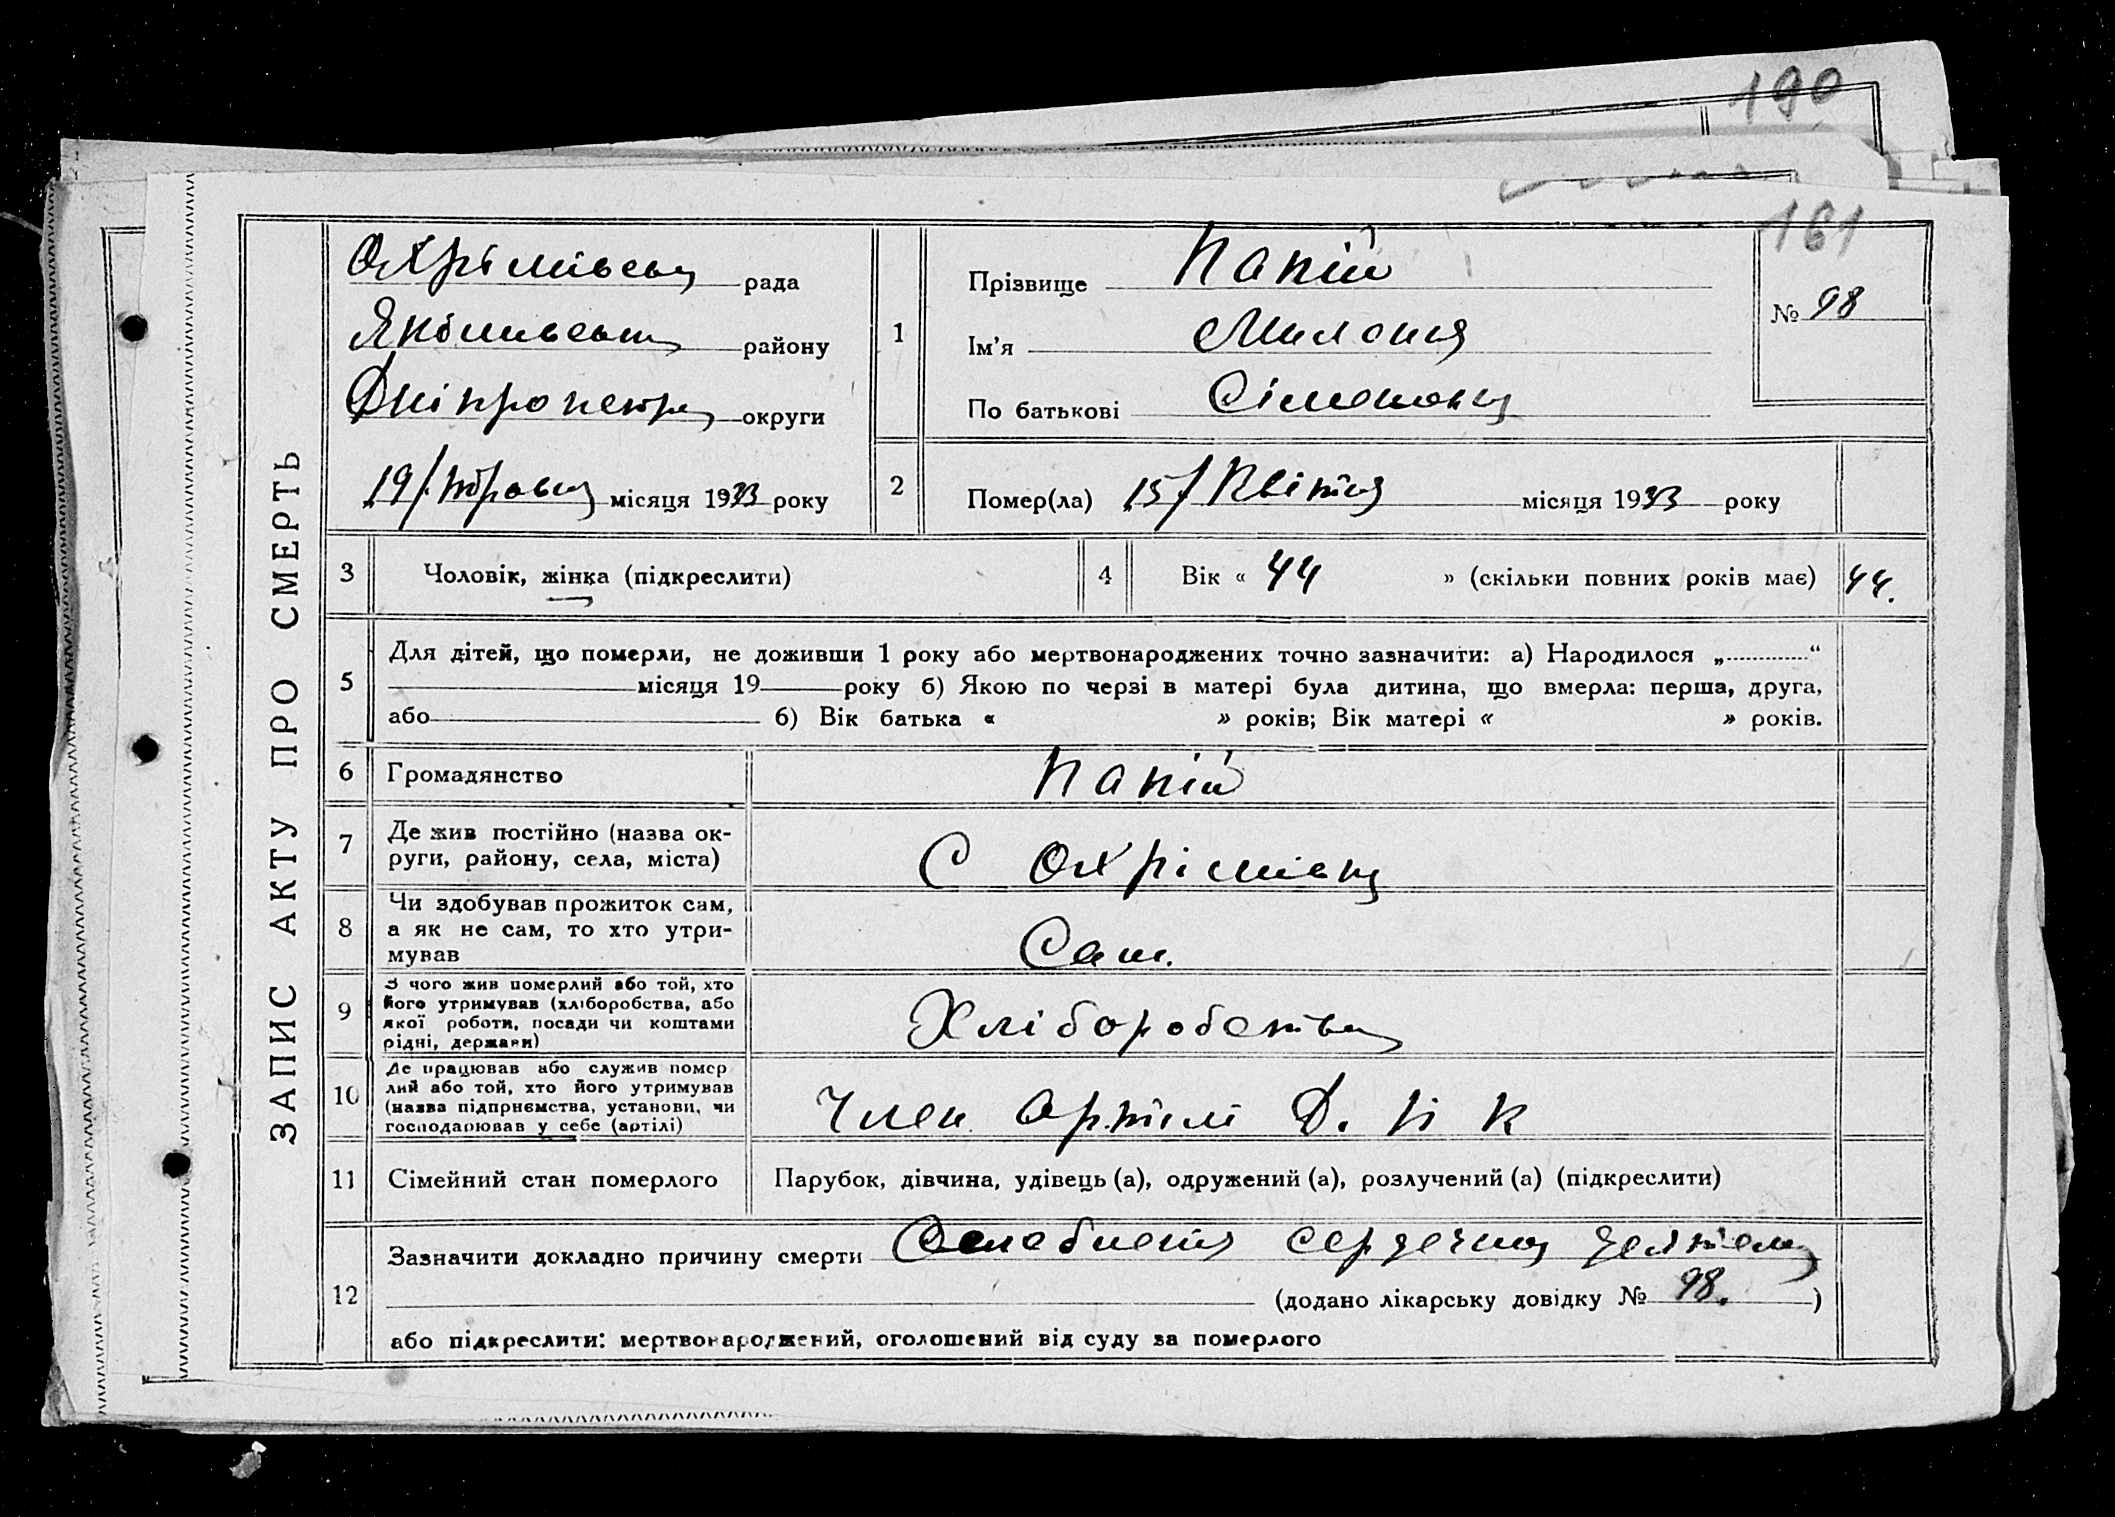 190
161
ЗАПИС АКТУ ПРО СМЕРТЬ
Охрімівськ рада
Якимівськ району
Дніпропетр округи
19/ травня місяця 1933 року
1
Прізвище Папій
Ім'я Миланія
По батькові Сімонівн
№ 98
2
Помер(ла) 15/ Квітня місяця 1933 року
3
Чоловік, жінка (підкреслити)
4
Вік « 44 » (скільки повних років має) 44.
5
Для дітей, що померли, не доживши 1 року або мертвонароджених точно зазначити: а) Народилося „ “
місяця 19 року б) Якою по черзі в матері була дитина, що вмерла: перша, друга,
або б) Вік батька « » років; Вік матері « » років.
6
Громадянство Папій
7
Де жив постійно (назва ок-
руги, району, села, міста)
С Охрімівк
8
Чи здобував прожиток сам,
а як не сам, то хто утри-
мував
Сам.
9
З чого жив померлий або той, хто
його утримував (хліборобства, або
якої роботи, посади чи коштами
рідні, держави)
Хліборобства
10
Де працював або служив помер
лий або той, хто його утримував
(назва підприємства, установи, чи
господарював у себе (артілі)
Член Артілі
11
Сімейний стан померлого
Парубок, дівчина, удівець (а), одружений (а), розлучений (а) (підкреслити)
12
Зазначити докладно причину смерти Ослаблення сердечної деятел
(додано лікарську довідку № 98. )
або підкреслити: мертвонароджений, оголошений від суду за померлого